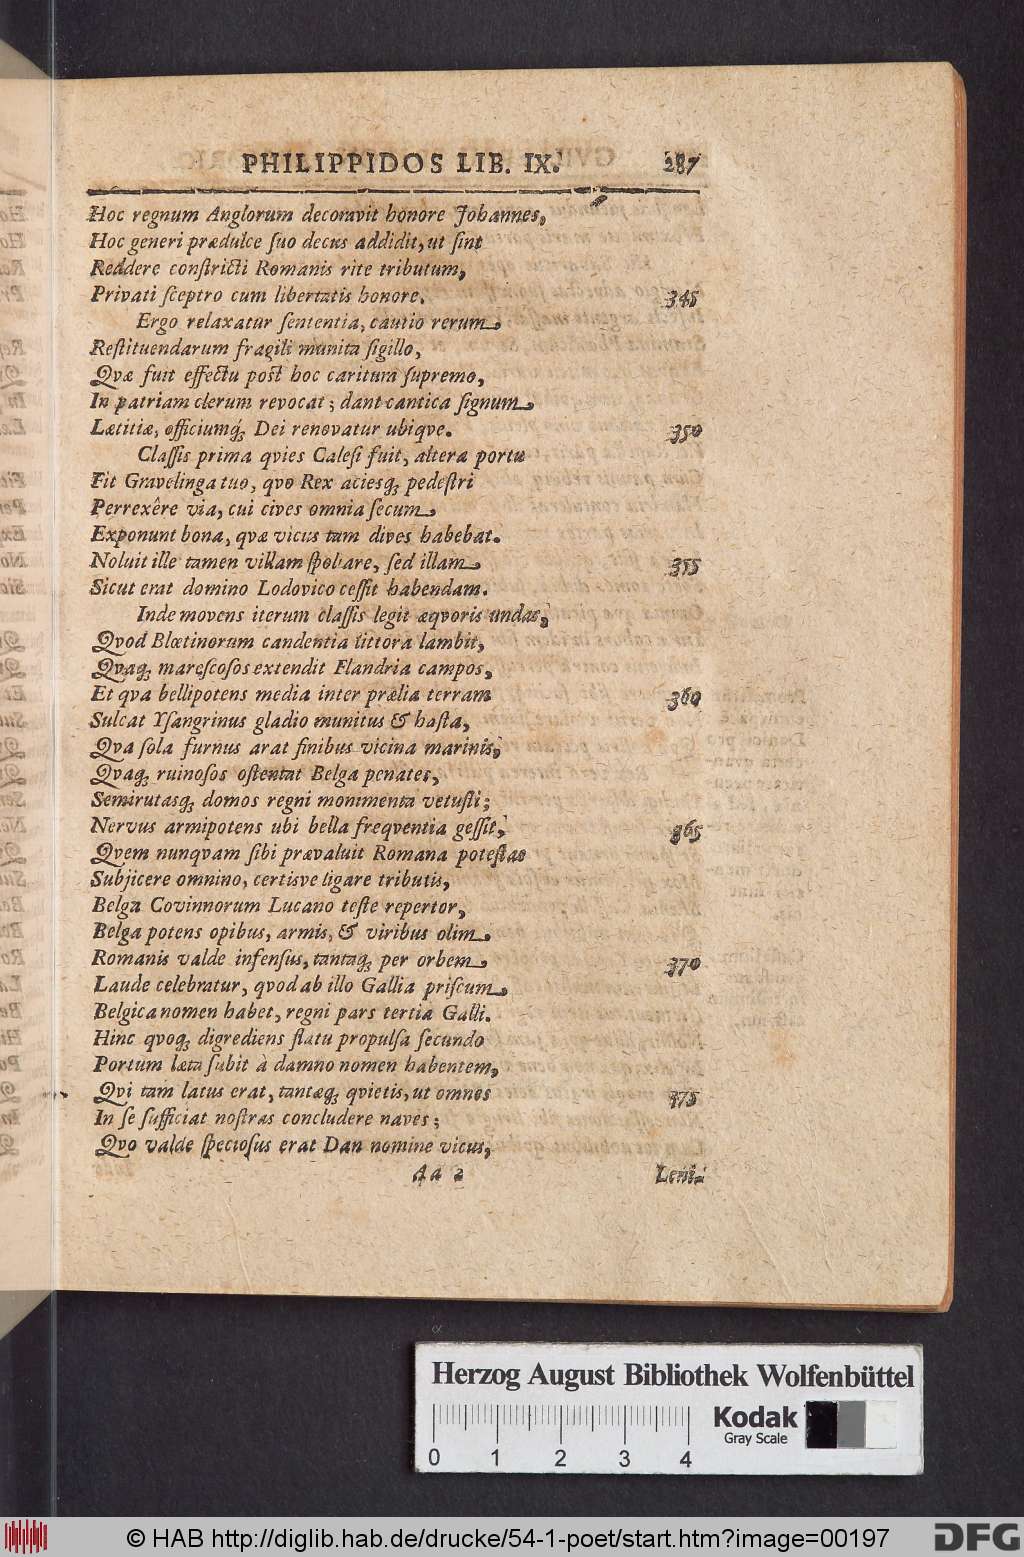 PHILIPPIDOS LIB. IX. 287
Hoc regnum Anglorum decoravit honore Johannes,
Hoc generi prædulce ſuo decus addidit, ut ſint
Reddere conſtricti Romanis rite tributum,
Privati ſceptro cum libertatis honore. 345
Ergo relaxatur ſententia, cautio rerum
Reſtituendarum fragili munita ſigillo,
Qvæ fuit effectu poſt hoc caritura ſupremo,
In patriam clerum revocat; dant cantica ſignum
Lætitiæ, officiumq; Dei renovatur ubiqve. 350
Claſſis prima qvies Caleſi fuit, altera portu
Fit Gravelinga tuo, qvo Rex aciesq; pedeſtri
Perrexêre via, cui cives omnia ſecum
Exponunt bona, qvæ vicus tam dives habebat.
Noluit ille tamen villam ſpoliare, ſed illam 355
Sicut erat domino Lodovico ceſſit habendam.
Inde movens iterum claſſis legit æqvoris undas,
Qvod Blœtinorum candentia littora lambit,
Qvaq; mareſcoſos extendit Flandria campos,
Et qva bellipotens media inter prælia terram 360
Sulcat Yſangrinus gladio munitus & haſta,
Qva ſola furnus arat finibus vicina marinis,
Qvaq; ruinoſos oſtentat Belga penates,
Semirutasq; domos regni monimenta vetuſti;
Nervus armipotens ubi bella freqventia geſſit, 365
Qvem nunqvam ſibi prævaluit Romana poteſtas
Subjicere omnino, certisve ligare tributis,
Belga Covinnorum Lucano teſte repertor,
Belga potens opibus, armis, & viribus olim
Romanis valde infenſus, tantaq; per orbem 370
Laude celebratur, qvod ab illo Gallia priſcum
Belgica nomen habet, regni pars tertia Galli.
Hinc qvoq; digrediens flatu propulſa ſecundo
Portum læta ſubit à damno nomen habentem,
Qvi tam latus erat, tantæq; qvietis, ut omnes 375
In ſe ſufficiat noſtras concludere naves;
Qvo valde ſpecioſus erat Dan nomine vicus,
Aa 2 Leni-
Herzog August Bibliothek Wolfenbüttel
Kodak
Gray Scale
0 1 2 3 4
© HAB http://diglib.hab.de/drucke/54-1-poet/start.htm?image=00197
DFG